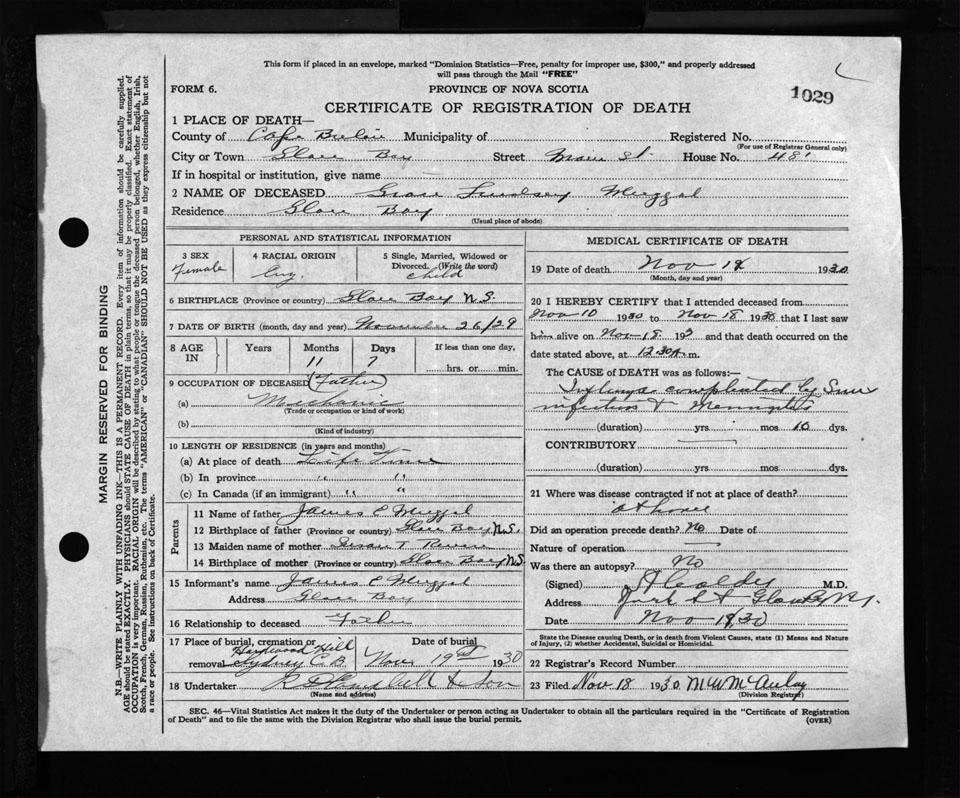 This form if placed in an envelope, marked "Dominion Statistics—Free, penalty for improper use, $300," and properly addressed
will pass through the Mail "FREE"
FORM 6.
PROVINCE OF NOVA SCOTIA
1029
CERTIFICATE OF REGISTRATION OF DEATH
1 PLACE OF DEATH—
County of Cape Breton Municipality of Registered No.
(For use of Registrar General only)
City or Town Glace Bay Street Main St. House No. 481
If in hospital or institution, give name
2 NAME OF DECEASED Grace Lindsey
Residence Glace Bay
(Usual place of abode)
PERSONAL AND STATISTICAL INFORMATION
3 SEX Female
4 RACIAL ORIGIN Eng.
5 Single, Married, Widowed or Divorced. (Write the word) child
6 BIRTHPLACE (Province or country) Glace Bay N.S.
7 DATE OF BIRTH (month, day and year) November 26/29
8 AGE IN Years Months 11 Days 7 If less than one day, hrs. or min.
9 OCCUPATION OF DECEASED (Father)
(a) Mechanic
(Trade or occupation or kind of work)
(b)
(Kind of industry)
10 LENGTH OF RESIDENCE (in years and months)
(a) At place of death Life Time
(b) In province " "
(c) In Canada (if an immigrant) " "
Parents
11 Name of father James C
12 Birthplace of father (Province or country) Glace Bay N.S.
13 Maiden name of mother Susan T
14 Birthplace of mother (Province or country) Glace Bay N.S
15 Informant's name James C
Address Glace Bay
16 Relationship to deceased Father
17 Place of burial, cremation or removal Hardwood Hill Sydney C.B. Date of burial Nov 19th 1930
18 Undertaker & Son
(Name and address)
MEDICAL CERTIFICATE OF DEATH
19 Date of death Nov 18 1930
(Month, day and year)
20 I HEREBY CERTIFY that I attended deceased from
Nov 10 1930 to Nov 18 1930 that I last saw
him alive on Nov 18 193 and that death occurred on the
date stated above, at 12.30 A m.
The CAUSE OF DEATH was as follows:—
complicated by Sinus
infection & Meningitis
(duration) yrs. mos 10 dys.
CONTRIBUTORY
(duration) yrs. mos. dys.
21 Where was disease contracted if not at place of death?
at home
Did an operation precede death? No Date of
Nature of operation
Was there an autopsy? No
(Signed) M.D.
Address
Date Nov 18, 30
State the Disease causing Death, or in death from Violent Causes, state (1) Means and Nature
of Injury, (2) whether Accidental, Suicidal or Homicidal.
22 Registrar's Record Number
23 Filed Nov. 18 1930. M W McAulay
(Division Registrar)
SEC. 46—Vital Statistics Act makes it the duty of the Undertaker or person acting as Undertaker to obtain all the particulars required in the "Certificate of Registration
of Death" and to file the same with the Division Registrar who shall issue the burial permit.
(OVER)
MARGIN RESERVED FOR BINDING
N.B.—WRITE PLAINLY WITH UNFADING INK—THIS IS A PERMANENT RECORD. Every item of information should be carefully supplied.
AGE should be stated EXACTLY. PHYSICIANS should STATE CAUSE OF DEATH in plain terms, so that it may be properly classified. Exact statement of
OCCUPATION is very important. RACIAL ORIGIN will be described by stating to what people or tongue the deceased person belonged, whether English, Irish,
Scotch, French, German, Russian, Ruthenian, etc. The terms "AMERICAN" or "CANADIAN" SHOULD NOT BE USED as they express citizenship but not
a race or people. See instructions on back of Certificate.